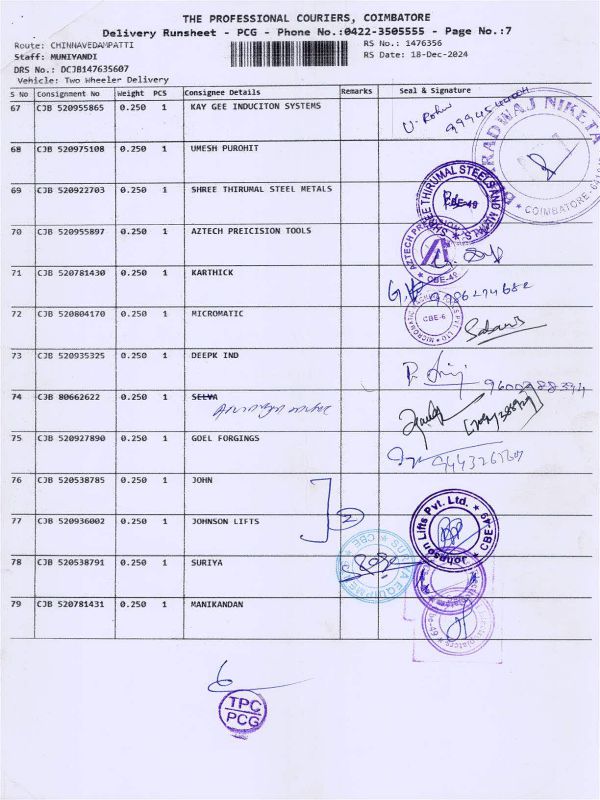 THE PROFESSIONAL COURIERS, COIMBATORE
Delivery Runsheet - PCG - Phone No.:0422-3505555 - Page No.:7
Route: CHINNAVEDAMPATTI RS No.: 1476356
Staff: MUNIYANDI RS Date: 18-Dec-2024
DRS No.: DCJB147635607
Vehicle: Two Wheeler Delivery
S No Consignment No Weight PCS Consignee Details Remarks Seal & Signature
67 CJB 520955865 0.250 1 KAY GEE INDUCITON SYSTEMS
68 CJB 520975108 0.250 1 UMESH PUROHIT
COIMBATORE
69 CJB 520922703 0.250 1 SHREE THIRUMAL STEEL METALS
CBE-49
70 CJB 520955897 0.250 1 AZTECH PREICISION TOOLS
CBE-49
71 CJB 520781430 0.250 1 KARTHICK
72 CJB 520804170 0.250 1 MICROMATIC
CBE-6
73 CJB 520935325 0.250 1 DEEPK IND
74 CJB 80662622 0.250 1 SELVA
75 CJB 520927890 0.250 1 GOEL FORGINGS
76 CJB 520538785 0.250 1 JOHN
2
77 CJB 520936002 0.250 1 JOHNSON LIFTS
Johnson Lifts Pvt. Ltd. CBE-49
78 CJB 520538791 0.250 1 SURIYA
79 CJB 520781431 0.250 1 MANIKANDAN
TPC
PCG